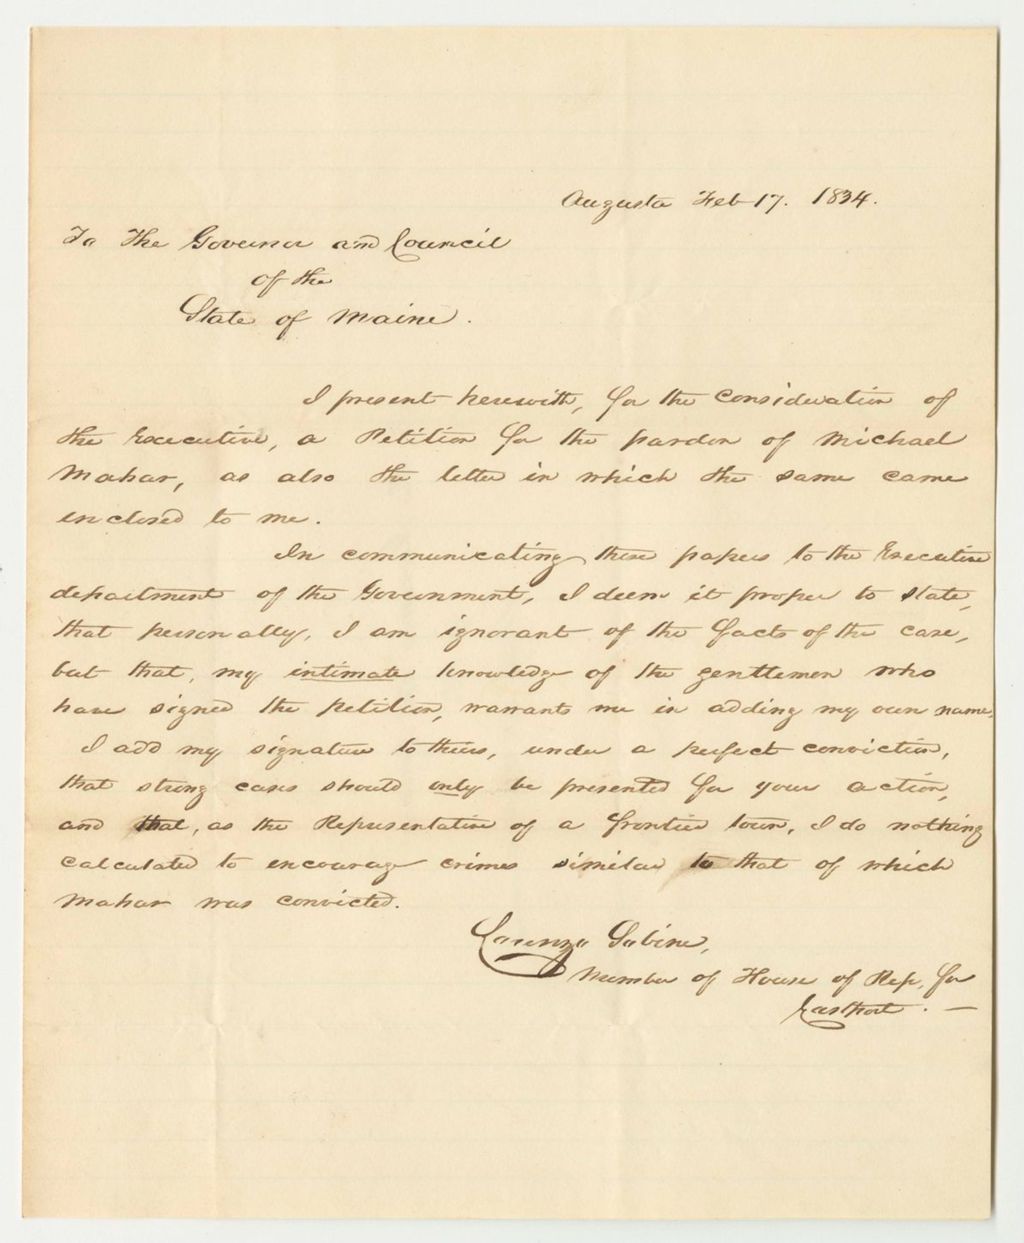 Augusta Feb 17. 1834.
To The Governor and Council
of the
State of Maine.
I present herewith, for the consideration of
the Executive, a Petition for the pardon of Michael
Mahar, as also the letter in which the same came
enclosed to me.
In communicating these papers to the Executive
department of the Government, I deem it proper to state,
that personally, I am ignorant of the facts of the case,
but that, my intimate knowledge of the gentlemen who
have signed the petition, warrants me in adding my own name.
I add my signature to theirs, under a perfect conviction,
that strong cases should only be presented for your action,
and that, as the Representative of a frontier town, I do nothing
calculated to encourage crimes similar to that of which
Mahar was convicted.
Lorenzo Sabine,
Member of House of Rep, for
Eastport. —